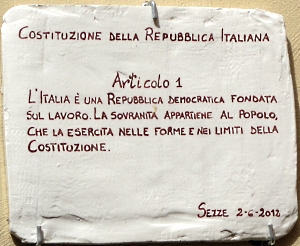 Costituzione della Repubblica Italiana
Articolo 1
L'Italia è una Repubblica democratica fondata
sul lavoro. La sovranità appartiene al popolo,
che la esercita nelle forme e nei limiti della
Costituzione.
Sezze 2-6-2012